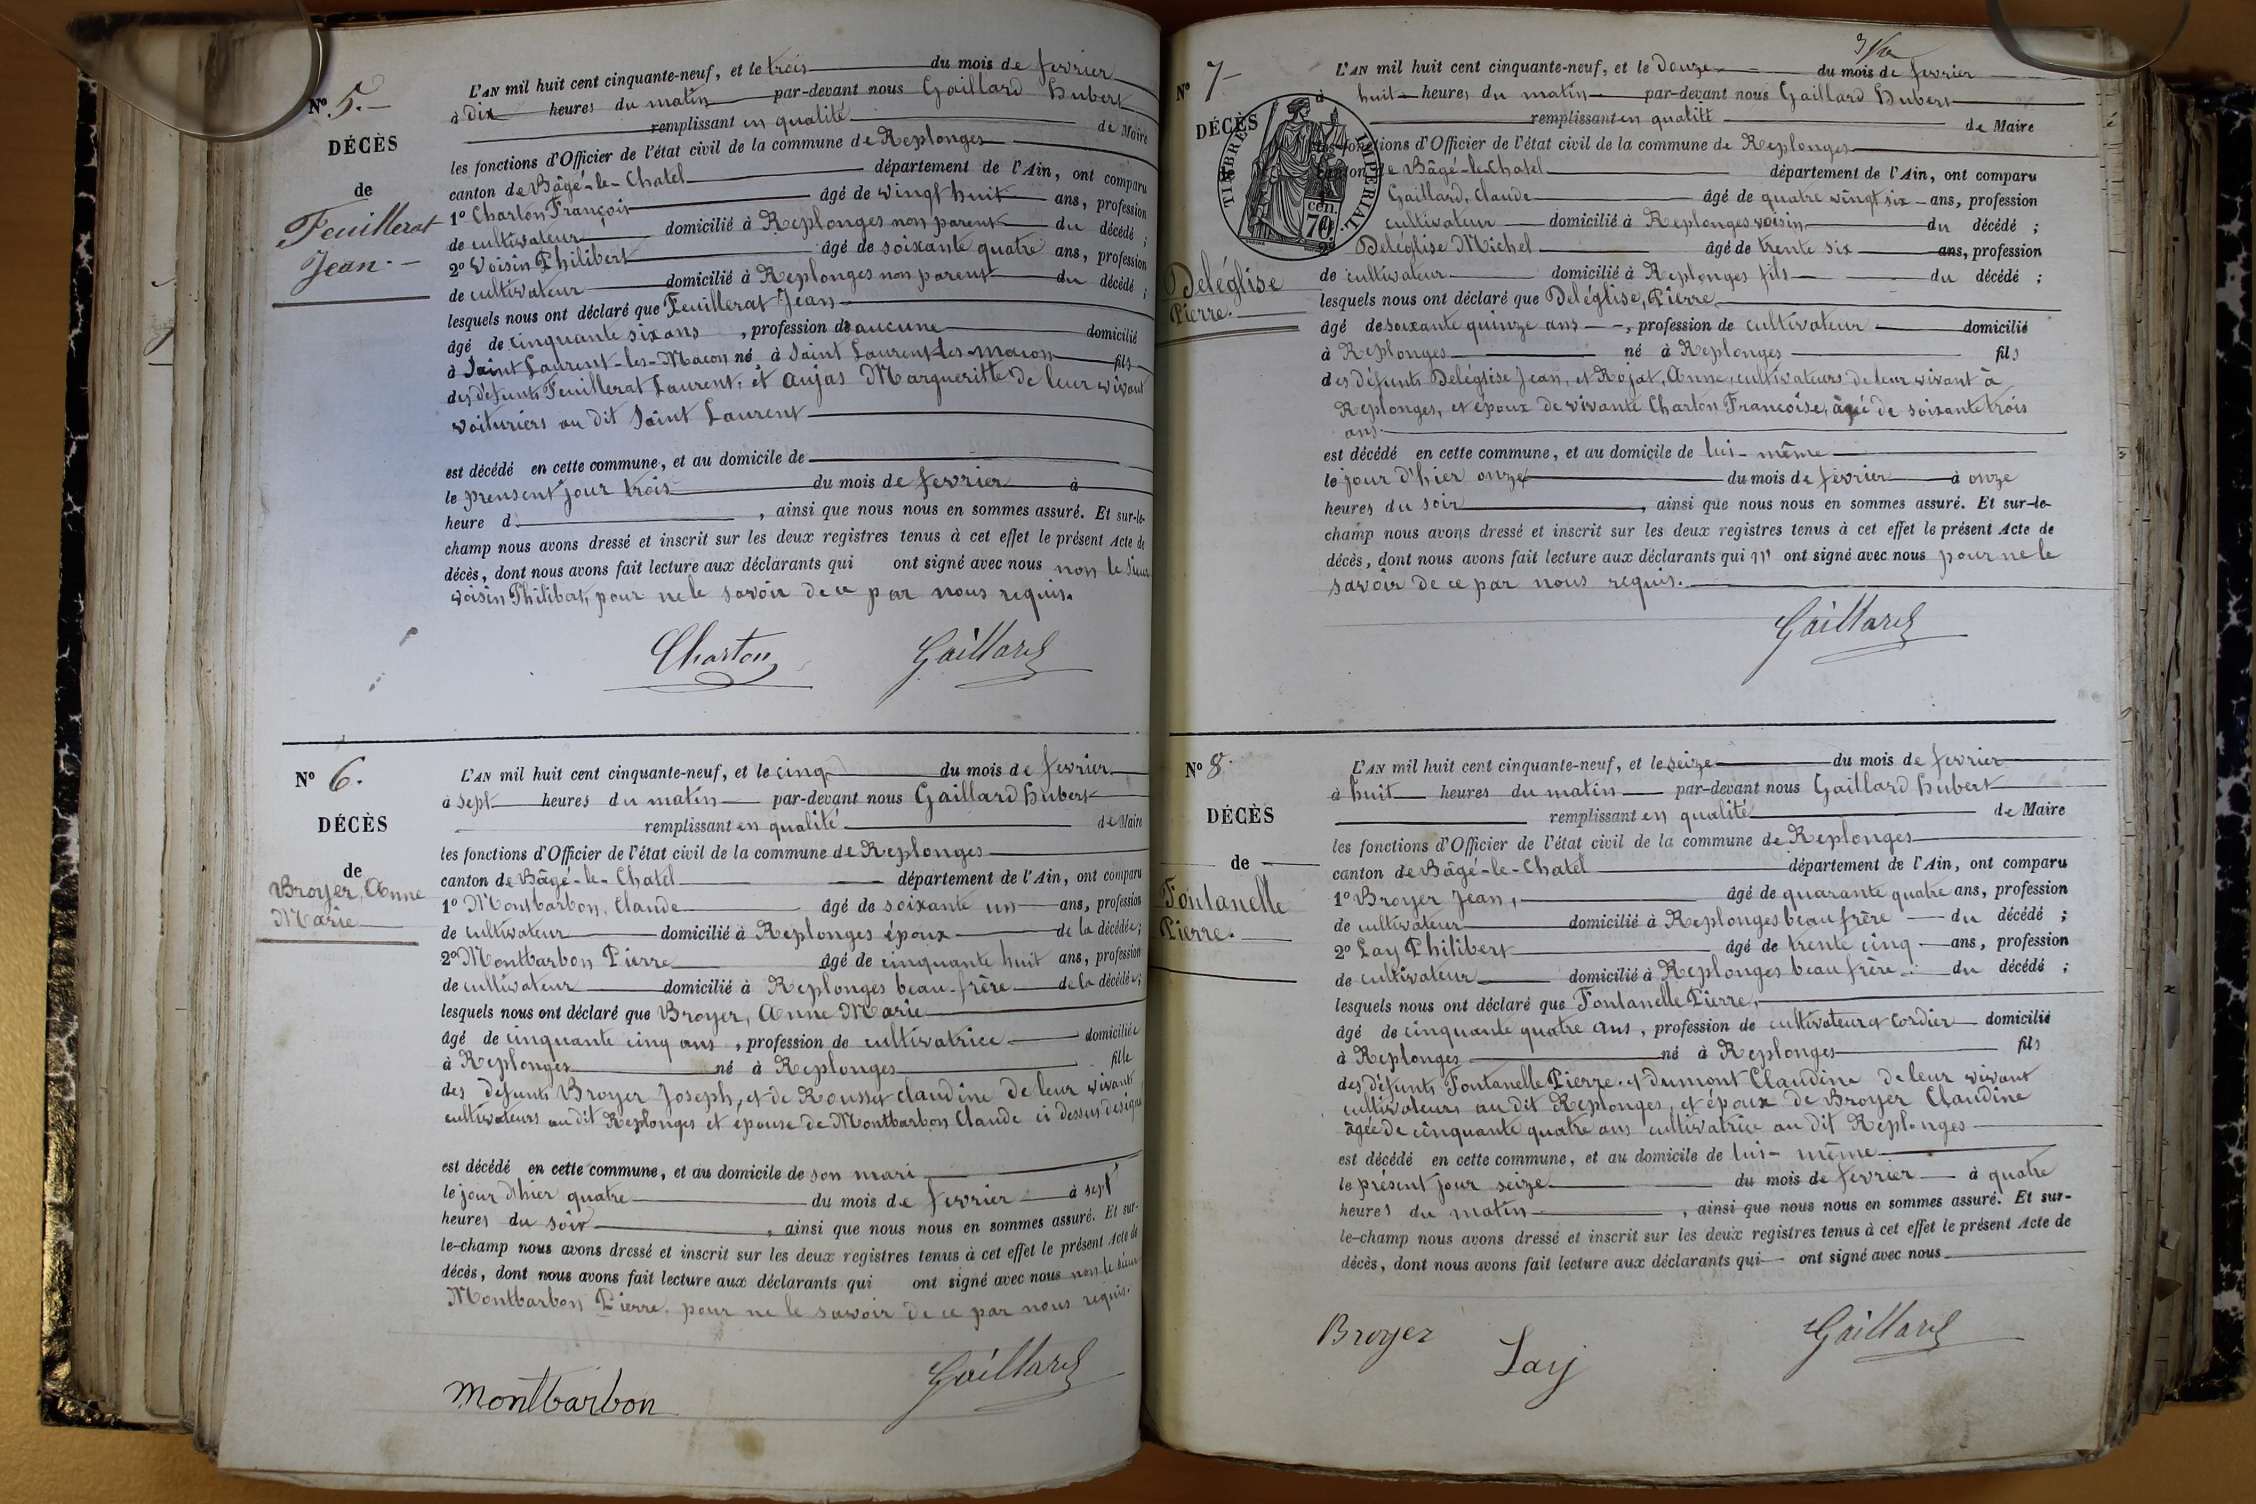 N° 5.
DÉCÈS
de
Feuillerat
Jean.
L'AN mil huit cent cinquante-neuf, et le trois du mois de fevrier
à dix heures du matin par-devant nous Gaillard Hubert
remplissant en qualité de Maire
les fonctions d'Officier de l'état civil de la commune de Replonges
canton de Bâgé-le-Chatel département de l'Ain, ont comparu
1° Charton François âgé de vingt huit ans, profession
de cultivateur domicilié à Replonges non parent du décédé ;
2° Voisin Philibert âgé de soixante quatre ans, profession
de cultivateur domicilié à Replonges non parent du décédé ;
lesquels nous ont déclaré que Feuillerat Jean
âgé de cinquante six ans , profession de aucune domicilié
à Saint Laurent-les-Macon né à Saint Laurent-les-macon fils
des défunts Feuillerat Laurent, et aujas Margueritte de leur vivant
voituriers au dit Saint Laurent
est décédé en cette commune, et au domicile de
le prensent jour trois du mois de fevrier à
heure d , ainsi que nous nous en sommes assuré. Et sur-le-
champ nous avons dressé et inscrit sur les deux registres tenus à cet effet le présent Acte de
décès, dont nous avons fait lecture aux déclarants qui ont signé avec nous non le sieur
voisin Philibert, pour ne le savoir de ce par nous requis.
Charton Gaillard
N° 6.
DÉCÈS
de
Broyer, Anne
Marie
L'AN mil huit cent cinquante-neuf, et le cinq du mois de fevrier
à sept heures du matin par-devant nous Gaillard Hubert
remplissant en qualité de Maire
les fonctions d'Officier de l'état civil de la commune de Replonges
canton de Bâgé-le-Chatel département de l'Ain, ont comparu
1° Montbarbon, Claude âgé de soixante un ans, profession
de cultivateur domicilié à Replonges époux de la décédée;
2° Montbarbon Pierre âgé de cinquante huit ans, profession
de cultivateur domicilié à Replonges beau-frère de la décédée;
lesquels nous ont déclaré que Broyer, Anne Marie
âgé de cinquante cinq ans , profession de cultivatrice domiciliée
à Replonges né à Replonges fille
des defunts Broyer Joseph, et de Rousset claudine de leur vivant
cultivateurs au dit Replonges et épouse de Montbarbon Claude ci dessus désigné
est décédé en cette commune, et au domicile de son mari
le jour d'hier quatre du mois de fevrier à sept
heures du soir , ainsi que nous nous en sommes assuré. Et sur-
le-champ nous avons dressé et inscrit sur les deux registres tenus à cet effet le présent Acte de
décès, dont nous avons fait lecture aux déclarants qui ont signé avec nous non le sieur
Montbarbon Pierre. pour ne le savoir de ce par nous requis.
Montbarbon Gaillard
N° 7
DÉCÈS
TIMBRE IMPERIAL
70 cen.
Deléglise
Pierre.
L'AN mil huit cent cinquante-neuf, et le douze du mois de fevrier
à huit heures du matin par-devant nous Gaillard Hubert
remplissant en qualité de Maire
les fonctions d'Officier de l'état civil de la commune de Replonges
canton de Bâgé-le-Chatel département de l'Ain, ont comparu
Gaillard, Claude âgé de quatre vingt six ans, profession
cultivateur domicilié à Replonges voisin du décédé ;
Deléglise Michel âgé de trente six ans, profession
de cultivateur domicilié à Replonges fils du décédé ;
lesquels nous ont déclaré que Deléglise, Pierre
âgé de soixante quinze ans , profession de cultivateur domicilié
à Replonges né à Replonges fils
des défunts Deléglise Jean, et Rojat, Anne, cultivateurs de leur vivant à
Replonges, et époux de vivante Charton Françoise, âgée de soixante trois
ans.
est décédé en cette commune, et au domicile de lui-même
le jour d'hier onze du mois de fevrier à onze
heures du soir , ainsi que nous nous en sommes assuré. Et sur-le-
champ nous avons dressé et inscrit sur les deux registres tenus à cet effet le présent Acte de
décès, dont nous avons fait lecture aux déclarants qui n' ont signé avec nous pour ne le
savoir de ce par nous requis.
Gaillard
N° 8.
DÉCÈS
de
Fontanelle
Pierre.
L'AN mil huit cent cinquante-neuf, et le seize du mois de fevrier
à huit heures du matin par-devant nous Gaillard Hubert
remplissant en qualité de Maire
les fonctions d'Officier de l'état civil de la commune de Replonges
canton de Bâgé-le-Chatel département de l'Ain, ont comparu
1° Broyer Jean, âgé de quarante quatre ans, profession
de cultivateur domicilié à Replonges beau frère du décédé ;
2° Lay Philibert âgé de trente cinq ans, profession
de cultivateur domicilié à Replonges beau frère du décédé ;
lesquels nous ont déclaré que Fontanelle Pierre,
âgé de cinquante quatre ans , profession de cultivateur et cordier domicilié
à Replonges né à Replonges fils
des défunts Fontanelle Pierre. et dumont Claudine de leur vivant
cultivateurs au dit Replonges, et époux de Broyer Claudine
âgée de cinquante quatre ans cultivatrice au dit Replonges
est décédé en cette commune, et au domicile de lui-même
le présent jour seize du mois de fevrier à quatre
heures du matin , ainsi que nous nous en sommes assuré. Et sur-
le-champ nous avons dressé et inscrit sur les deux registres tenus à cet effet le présent Acte de
décès, dont nous avons fait lecture aux déclarants qui ont signé avec nous
Broyer Lay Gaillard